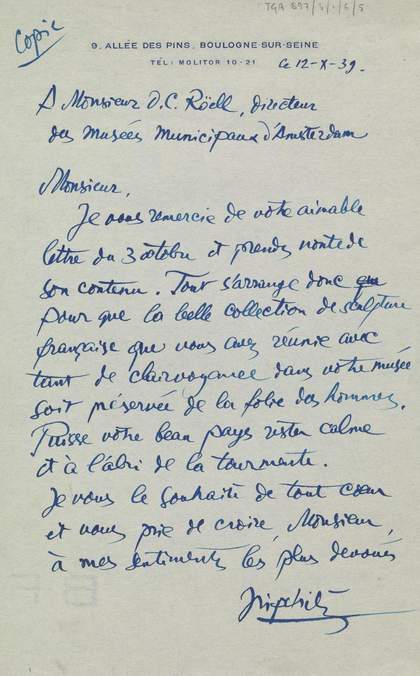 TGA 897/
Copie
9. ALLÉE DES PINS. BOULOGNE-SUR-SEINE
TÉL: MOLITOR 10-21
ce 12-X-39.
A Monsieur D.C. Röell, directeur
des Musées Municipaux d'Amsterdam
Monsieur,
Je vous remercie de votre aimable
lettre du 3 octobre et prends note de
son contenu. Tout s'arrange donc
pour que la belle collection de sculpture
française que vous avez réunie avec
tant de clairvoyance dans votre musée
soit préservée de la folie des hommes.
Puisse votre beau pays rester calme
et à l'abri de la tourmente.
Je vous le souhaite de tout cœur
et vous prie de croire, Monsieur,
à mes sentiments les plus dévoués